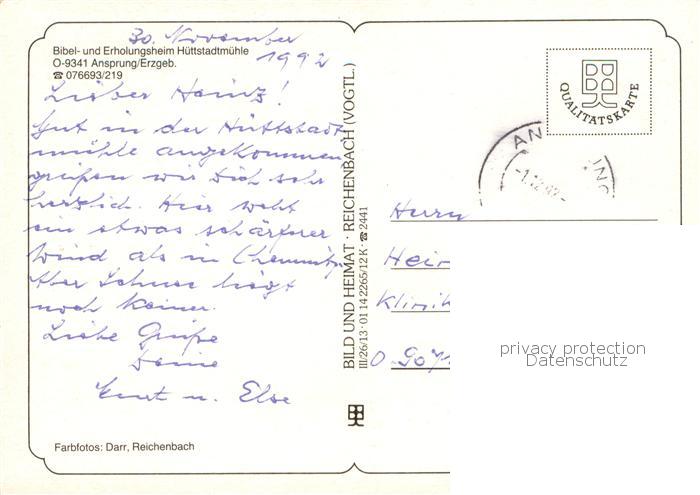 30. November
1992
Bibel- und Erholungsheim Hüttstadtmühle
O-9341 Ansprung/Erzgeb.
☎ 076693/219
Lieber Heinz!
Gut in der Hüttstadt
mühle angekommen
grüßen wir Dich sehr
herzlich. Hier weht
ein etwas schärferer
Wind als in Chemnitz.
Aber Schnee liegt
noch keiner.
Liebe Grüße
Deine
Kurt u. Else
Farbfotos: Darr, Reichenbach
BILD UND HEIMAT · REICHENBACH (VOGTL.)
III/26/13 · 01 14 2265/12 K · ☎ 2441
QUALITÄTSKARTE
AN UNG
-1.12.92-
Herrn
Hein
Klinik
O-907
privacy protection
Datenschutz